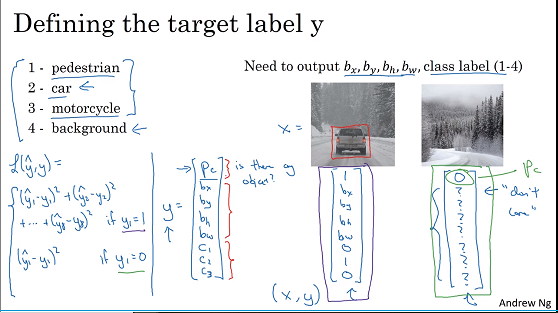 Defining the target label y
1 - pedestrian
2 - car ←
3 - motorcycle
4 - background ←
Need to output bx, by, bh, bw, class label (1-4)
x =
L(ŷ,y) =
(ŷ1-y1)² + (ŷ2-y2)²
+ ... + (ŷ8-y8)² if y1=1
(ŷ1-y1)² if y1=0
y =
→ Pc
bx
by
bh
bw
c1
c2
c3
is there any
object?
1
bx
by
bh
bw
0
1
0
(x, y)
0
?
?
?
?
?
?
?
Pc
← "don't
care"
Andrew Ng